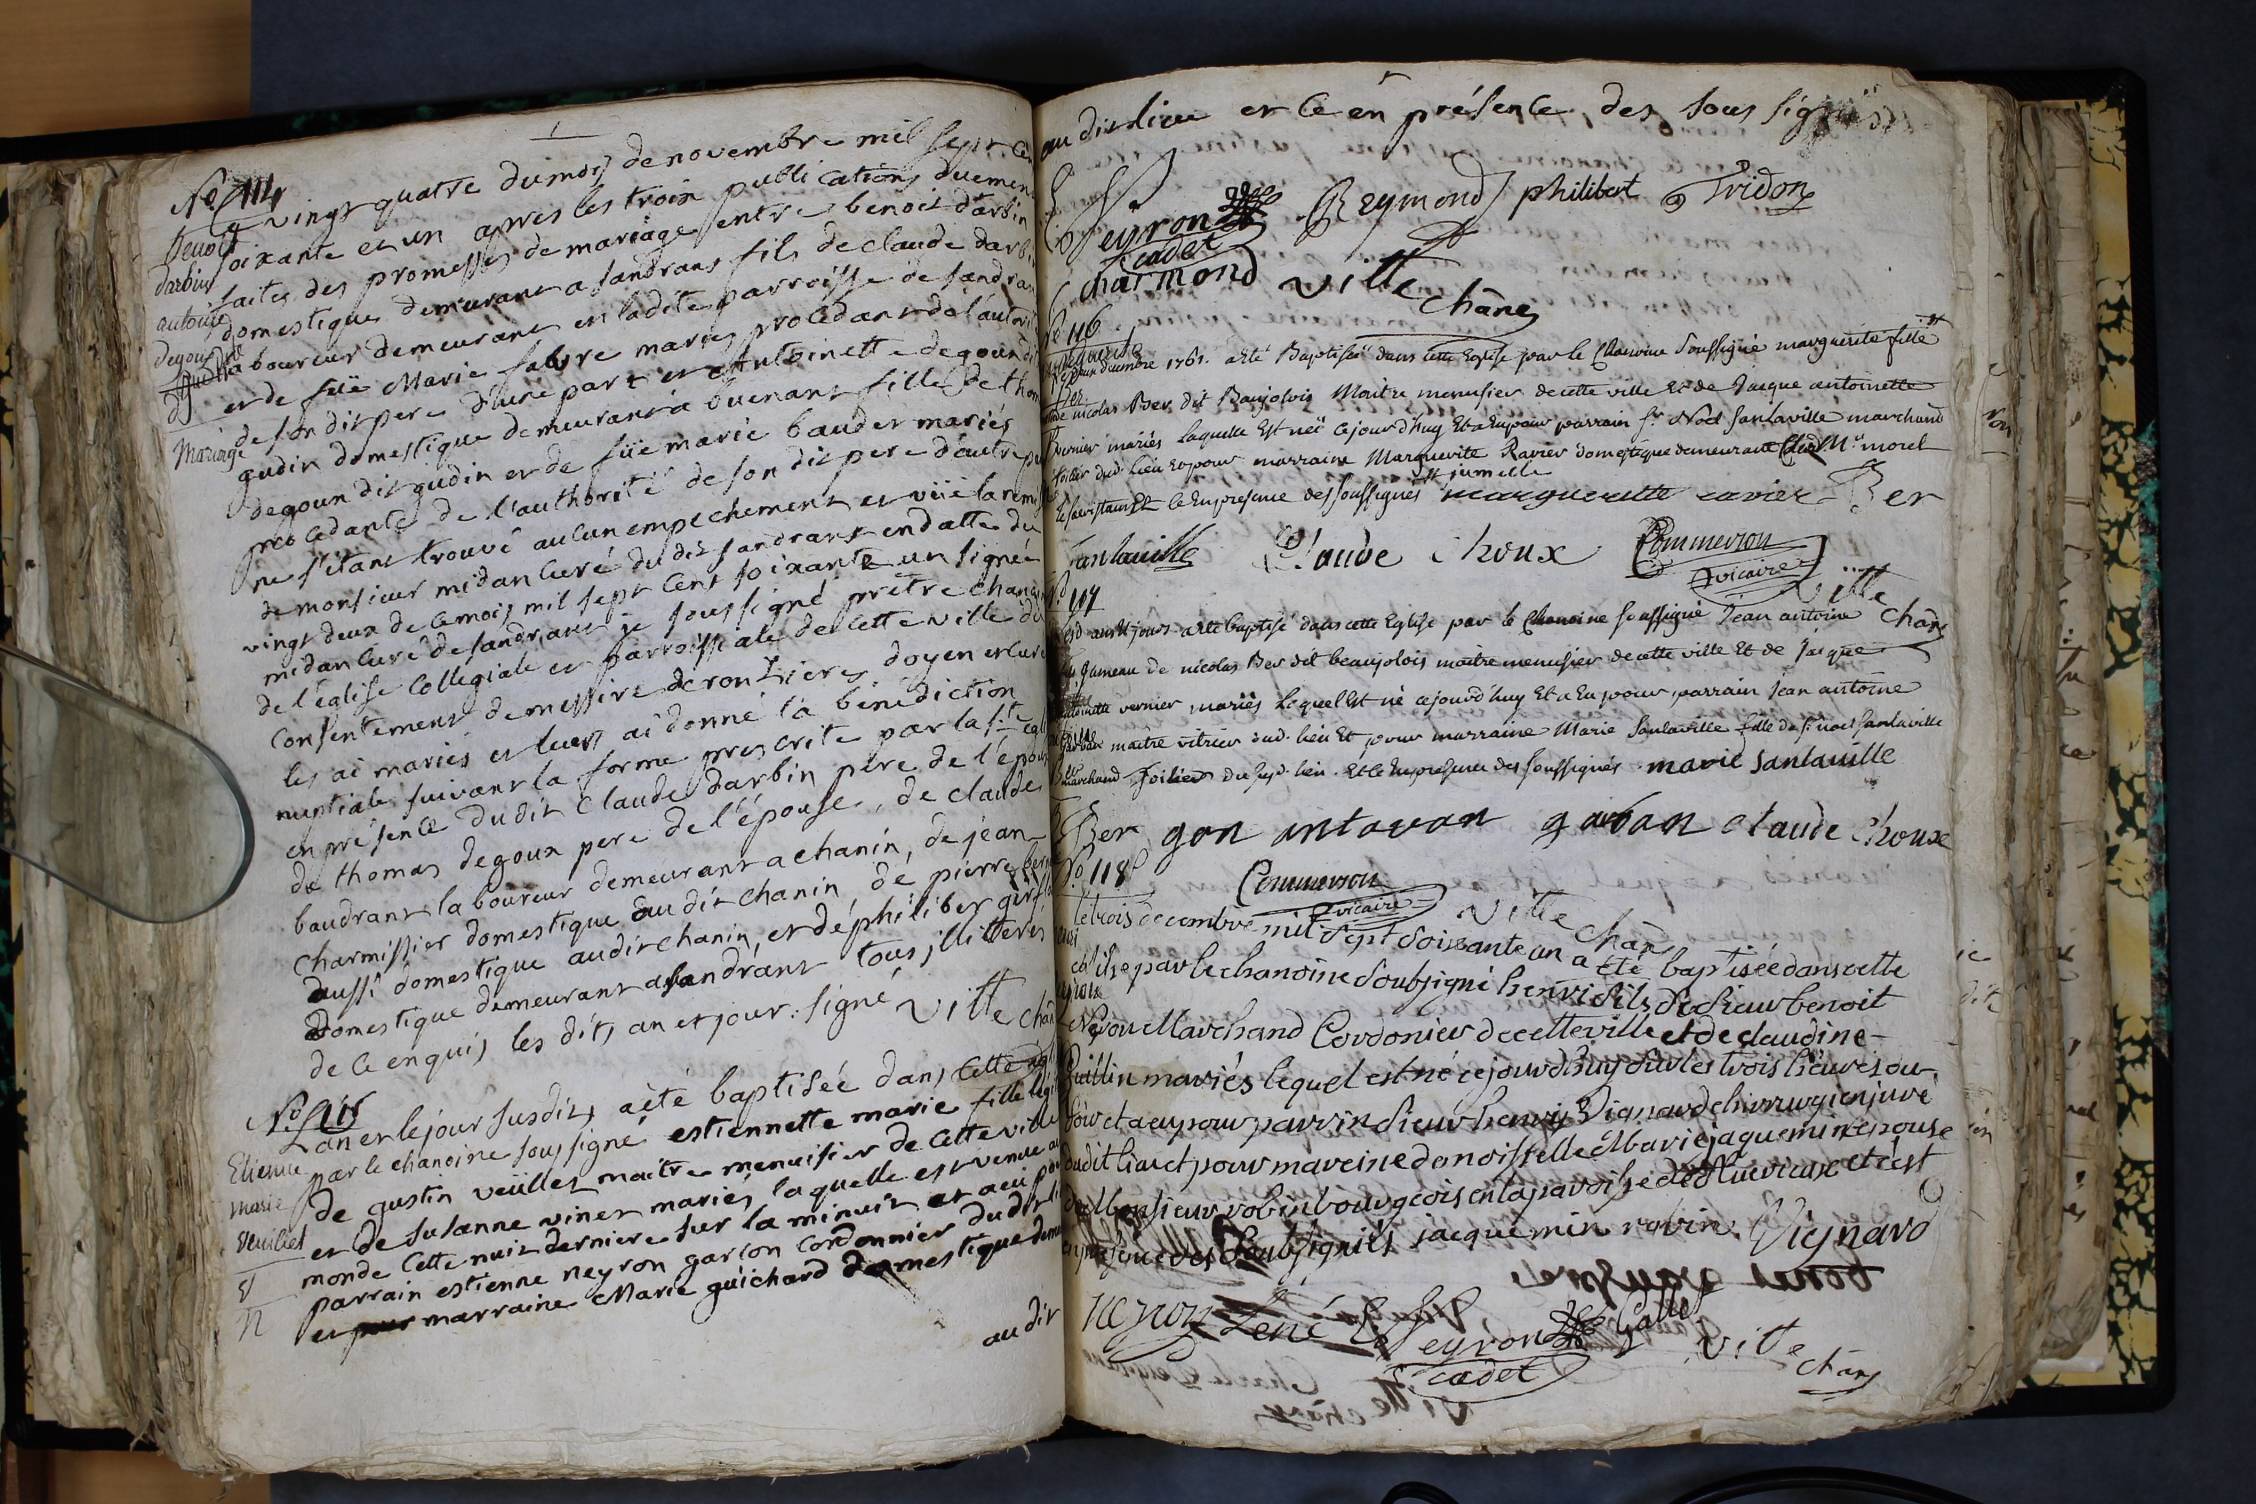 No 114
Le vingt quatre du mois de novembre mil sept cen
soixante et un apres les troix publications duement
faites des promesses de mariage entre benoit darbin
domestique demeurant a sandrans fils de claude darbin
laboureur demeurant en ladite parroisse de sandrans
et de füe Marie fabvre mariés procedant de l'autorité
de son dit pere d'une part et Antoinette degoun dit
gudin domestique demeurant a buenant fille de thom
degoun dit gudin et de füe marie baudet mariés
procedante de l'authorité de son dit pere d'autre par
ne s'etant trouvé aucun empechement et vüe la remi
de monsieur midan curé dudit sandrans en datte du
vingt deux de ce mois mil sept cent soixante un signée
midan curé de sandrans je soussigné prêtre chanoin
de l'eglise collegiale et parroissiale de cette ville du
consentement de messire deronzieres doyen et curé
les ai mariés et leurs ai donné la bénédiction
nuptiale suivant la forme prescrite par la ste egli
en présence dudit claude darbin père de l'époux
de thomas degoux pere de l'épouse, de claude
baudrant laboureur demeurant a chanin, de jean
charmissier domestique audit chanin de pierre
aussi domestique audit chanin, et de philiber
domestique demeurant a sandrant tous illitterés
de ce enquis les dits an et jour. signé ville chan
Benoit
darbin
antoine
degoun
gudin
Mariage
No 115
L'an et le jour susdits a èté baptisée dans cette egl
par le chanoine soussigné estiennette marie fille légi
de gustin veüillet maitre menuisier de cette ville
et de susanne vinet mariés, laquelle est venue au
monde cette nuit derniere sur la minuit et a eu p
parrain estienne neyron garcon cordonnier dudit li
et pour marraine Marie guichard domestique dem
au dit
Etienne
Marie
veuillet
au dit lieu et ce en présence des sous signés
Peyron cadet Reymond philibert Tridon
charmond ville chane
No 116
decembre 1761. a eté Baptisée dans cette Eglise par le Chanoine soussigné marguerite fille
nicolas Ber dit Baujolois Maitre menusier de cette ville et de Jacque antoinette
Vernier mariés laquelle Est née ce jourd'huy Et a Eu pour parrain sr Noel Sanlaville marchand
toilier dud. lieu et pour marraine Marguerite Ravier domestique demeurant Chéz Mr morel
jumelle
Et ce En presence des soussignés marguerite ravier Ber
Sanlaville Claude choux Commerson vicaire
ville chan
No 117
an et jour a eté baptisé dans cette Eglise par le Chanoine soussigné Jean antoine
gumeau de nicolas Ber dit beaujolois maitre menusier de cette ville Et de Jacque
antoinette vernier mariés Lequel Est né ce jourd'huy Et a Eu pour parrain Jean antoine
maitre vitrier dud. lieu Et pour marraine Marie Sanlaville fille de sr noel Sanlaville
marchand toilier du susd. lieu. Et ce En presence des soussignés marie Sanlaville
Ber gan antavan gavban claude choux
No 118
Commerson vicaire ville chan
le trois decembre mil sept soixante un a été baptisée dans cette
eglise par le chanoine soubsigné henri fils de sieur benoit
Neyron Marchand Cordonier de cette ville et de claudine
Guillin mariés lequel est né ce jourd'huy sur les trois heures du
soir et a eu pour parrin sieur henry Vignard chirurgien juré
dudit lieu et pour mareine demoiselle Marie jaquemin epouse
de Monsieur robin bourgeois en la paroisse de fluerieux et c'est
en presence des soubsignés jacquemin robin. Vignard
neyron René Peyron cadet Galle
ville chan